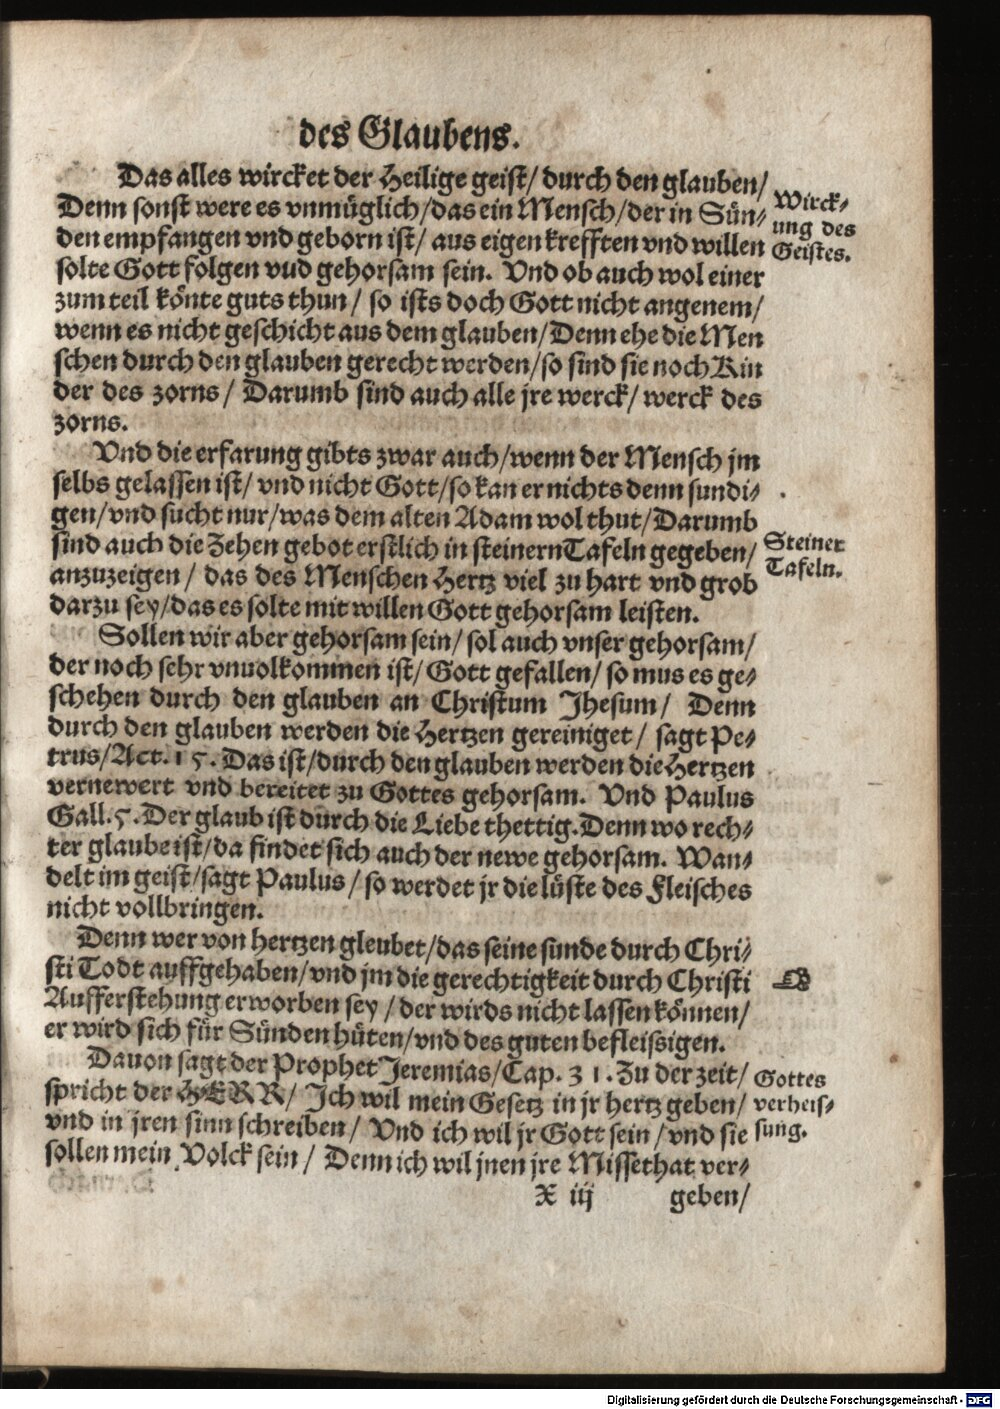 des Glaubens.
Das alles wircket der Heilige geist/ durch den glauben/
Denn sonst were es vnmüglich/das ein Mensch/der in Sün-
den empfangen vnd geborn ist/ aus eigen krefften vnd willen
solte Gott folgen vud gehorsam sein. Vnd ob auch wol einer
zum teil könte guts thun/ so ists doch Gott nicht angenem/
wenn es nicht geschicht aus dem glauben/Denn ehe die Men
schen durch den glauben gerecht werden/so sind sie noch Kin
der des zorns/ Darumb sind auch alle jre werck/ werck des
zorns.
Wirck-
ung des
Geistes.
Vnd die erfarung gibts zwar auch/wenn der Mensch jm
selbs gelassen ist/ vnd nicht Gott/so kan er nichts denn sundi-
gen/vnd sucht nur/was dem alten Adam wol thut/Darumb
sind auch die Zehen gebot erstlich in steinern Tafeln gegeben/
anzuzeigen/ das des Menschen Hertz viel zu hart vnd grob
darzu sey/das es solte mit willen Gott gehorsam leisten.
Steiner
Tafeln.
Sollen wir aber gehorsam sein/ sol auch vnser gehorsam/
der noch sehr vnuolkommen ist/ Gott gefallen/ so mus es ge-
schehen durch den glauben an Christum Jhesum/ Denn
durch den glauben werden die Hertzen gereiniget/ sagt Pe-
trus/Act. 15. Das ist/durch den glauben werden die Hertzen
vernewert vnd bereitet zu Gottes gehorsam. Vnd Paulus
Gall. 5. Der glaub ist durch die Liebe thettig. Denn wo rech-
ter glaube ist/da findet sich auch der newe gehorsam. Wan-
delt im geist/sagt Paulus/ so werdet jr die lüste des Fleisches
nicht vollbringen.
Denn wer von hertzen gleubet/das seine sunde durch Chri-
sti Todt auffgehaben/vnd jm die gerechtigkeit durch Christi
Aufferstehung erworben sey/ der wirds nicht lassen können/
er wird sich für Sünden hüten/vnd des guten befleissigen.
Dauon sagt der Prophet Jeremias/Cap. 31. Zu der zeit/
spricht der HERR/ Ich wil mein Gesetz in jr hertz geben/
vnd in jren sinn schreiben/ Vnd ich wil jr Gott sein/vnd sie
sollen mein Volck sein/ Denn ich wil jnen jre Missethat ver-
Gottes
verheis-
sung.
X iij geben/
Digitalisierung gefördert durch die Deutsche Forschungsgemeinschaft - DFG